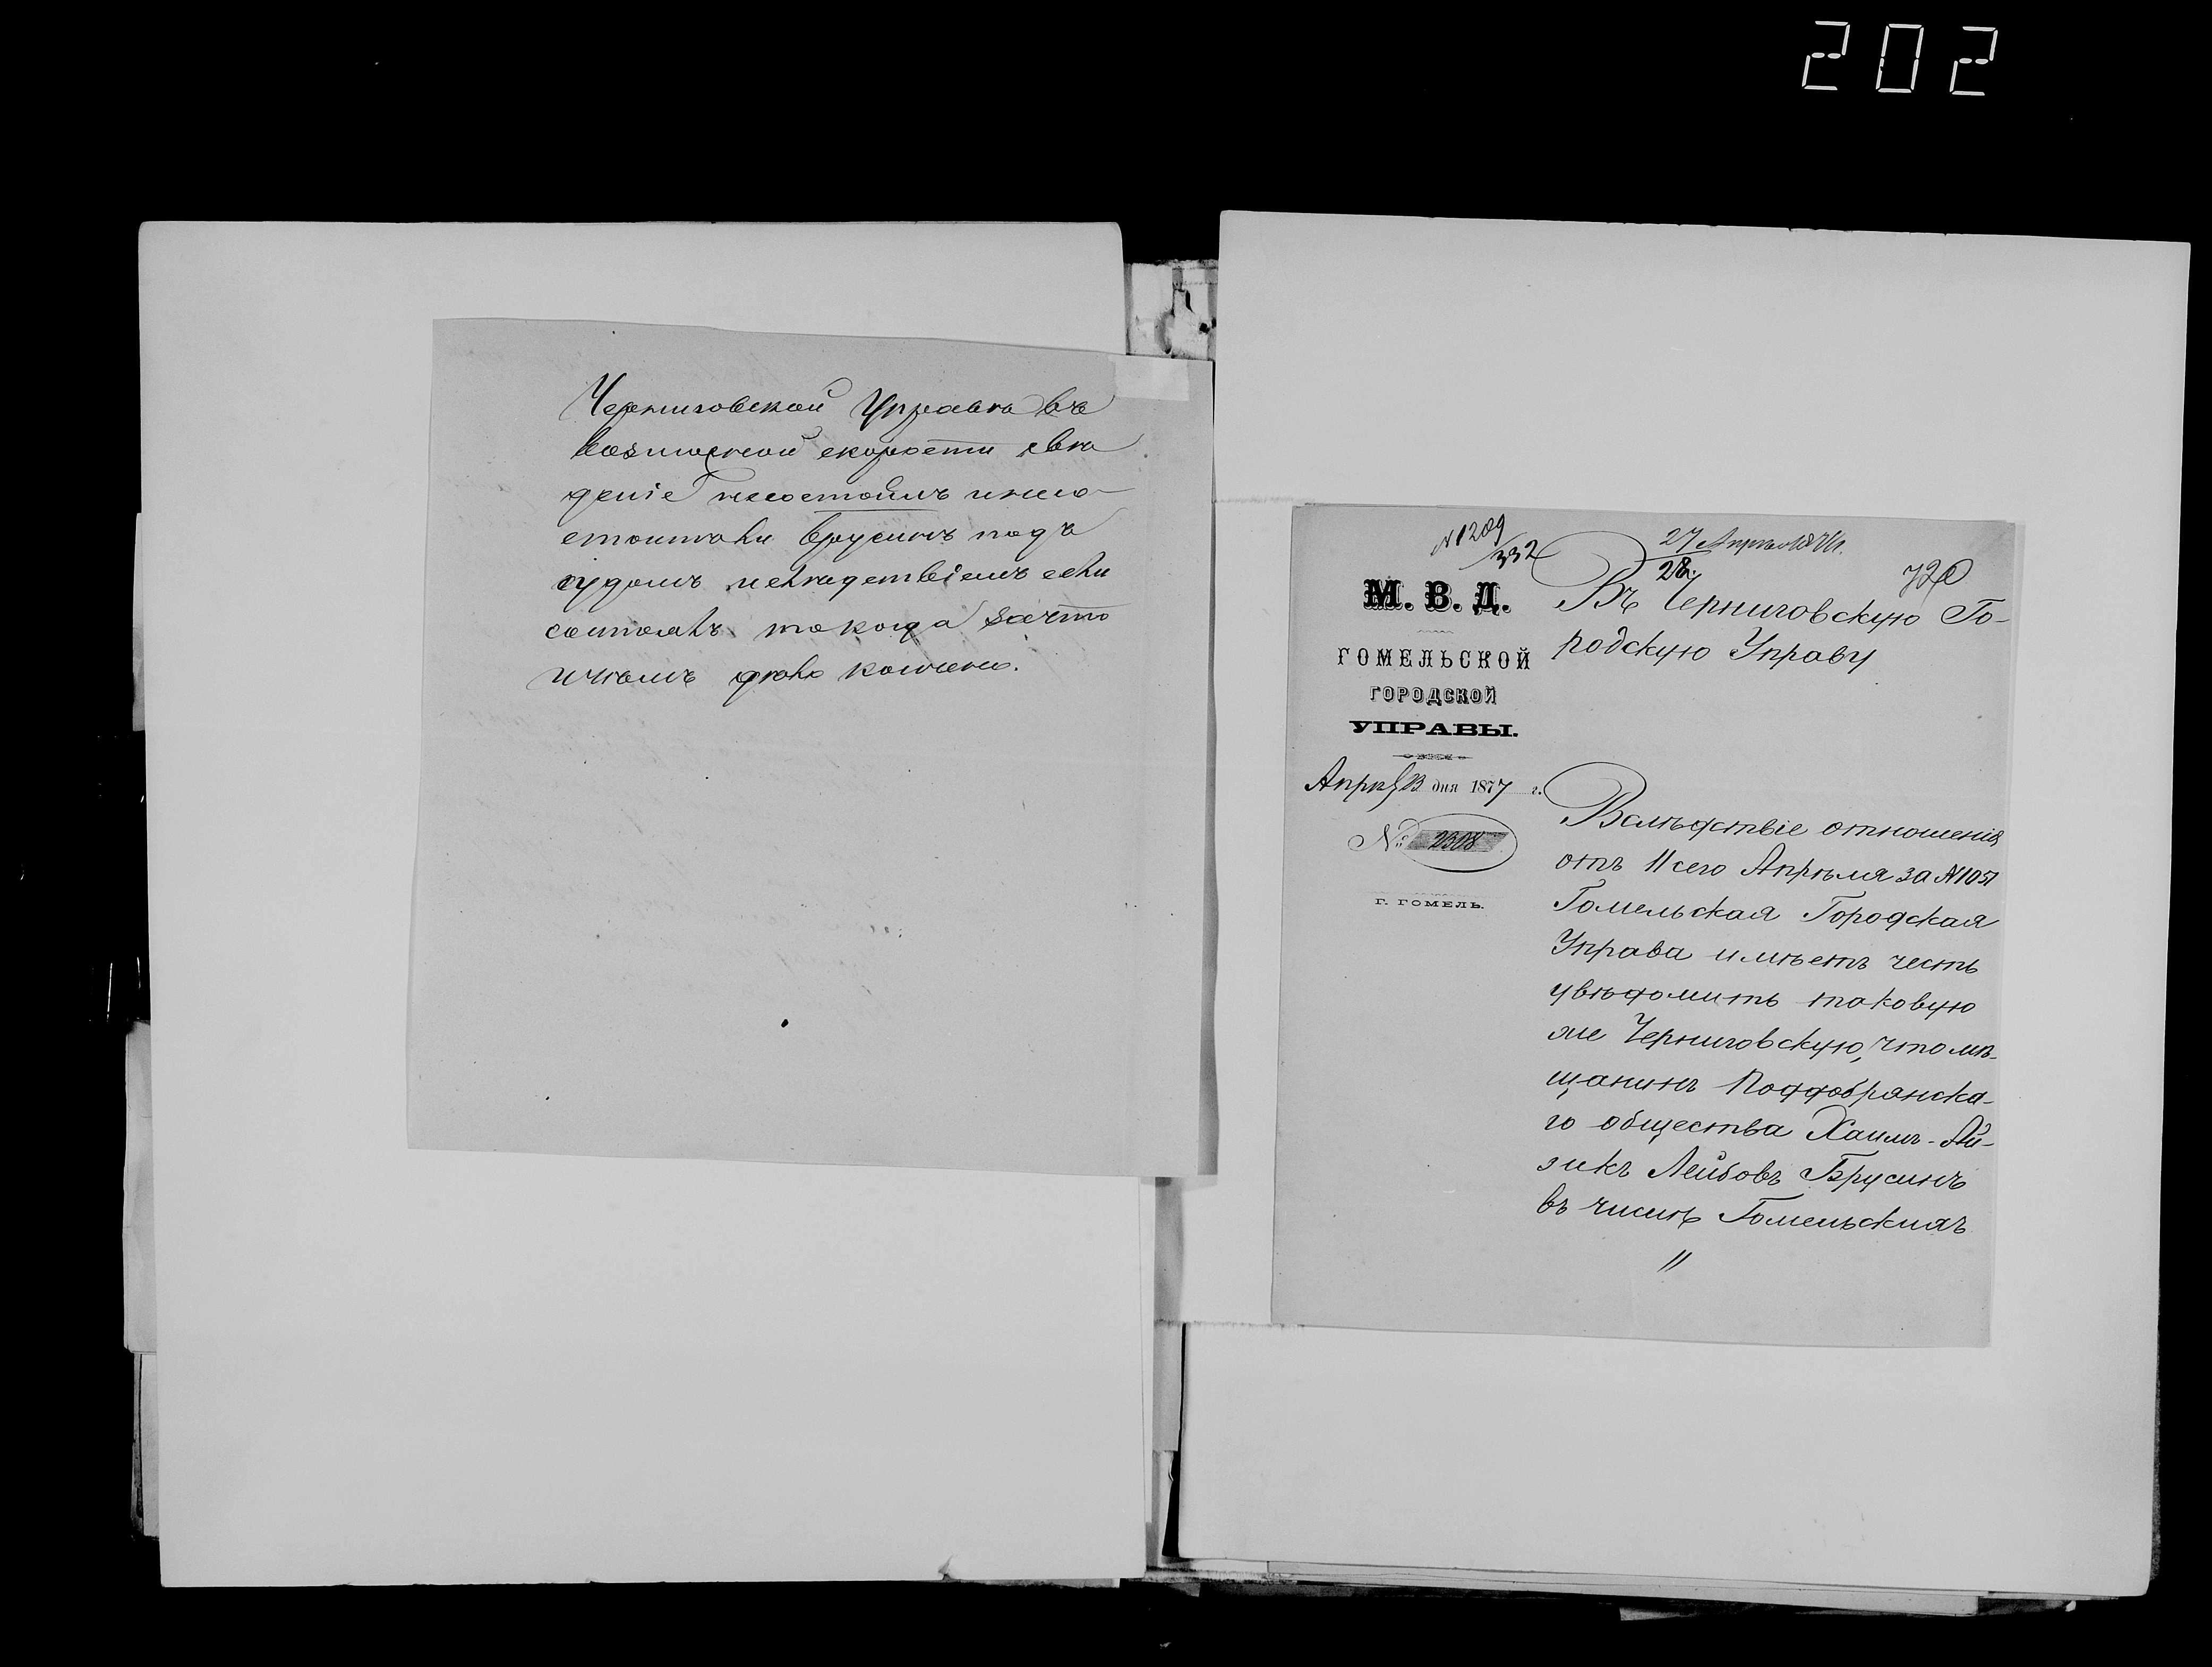 202
Черниговской Управѣ въ
возможной скорости свѣ
деніе несостоитъ ине со
стоитъли Брусинъ подъ
судомъ ислѣдствіемъ если
состоялъ токогда зачто
ичѣмъ дѣло кончено.
№1209/332
27 Апрѣля
28
720
М. В. Д.
ГОМЕЛЬСКОЙ
ГОРОДСКОЙ
УПРАВЫ.
Апрѣ 23 дня 1877 г.
№ 2308
Г. ГОМЕЛЬ.
Въ Черниговскую Го-
родскую Управу
Вслѣдствіе отношенія
отъ 11 сего Апрѣля за №1051
Гомельская Городская
Управа имѣетъ честь
увѣдомить таковую
же Черниговскую, что мѣ-
щанинъ Поддобрянска-
го общества Хаимъ-Ай-
зикъ Лейбовъ Брусинъ
въ числѣ Гомельскихъ
//